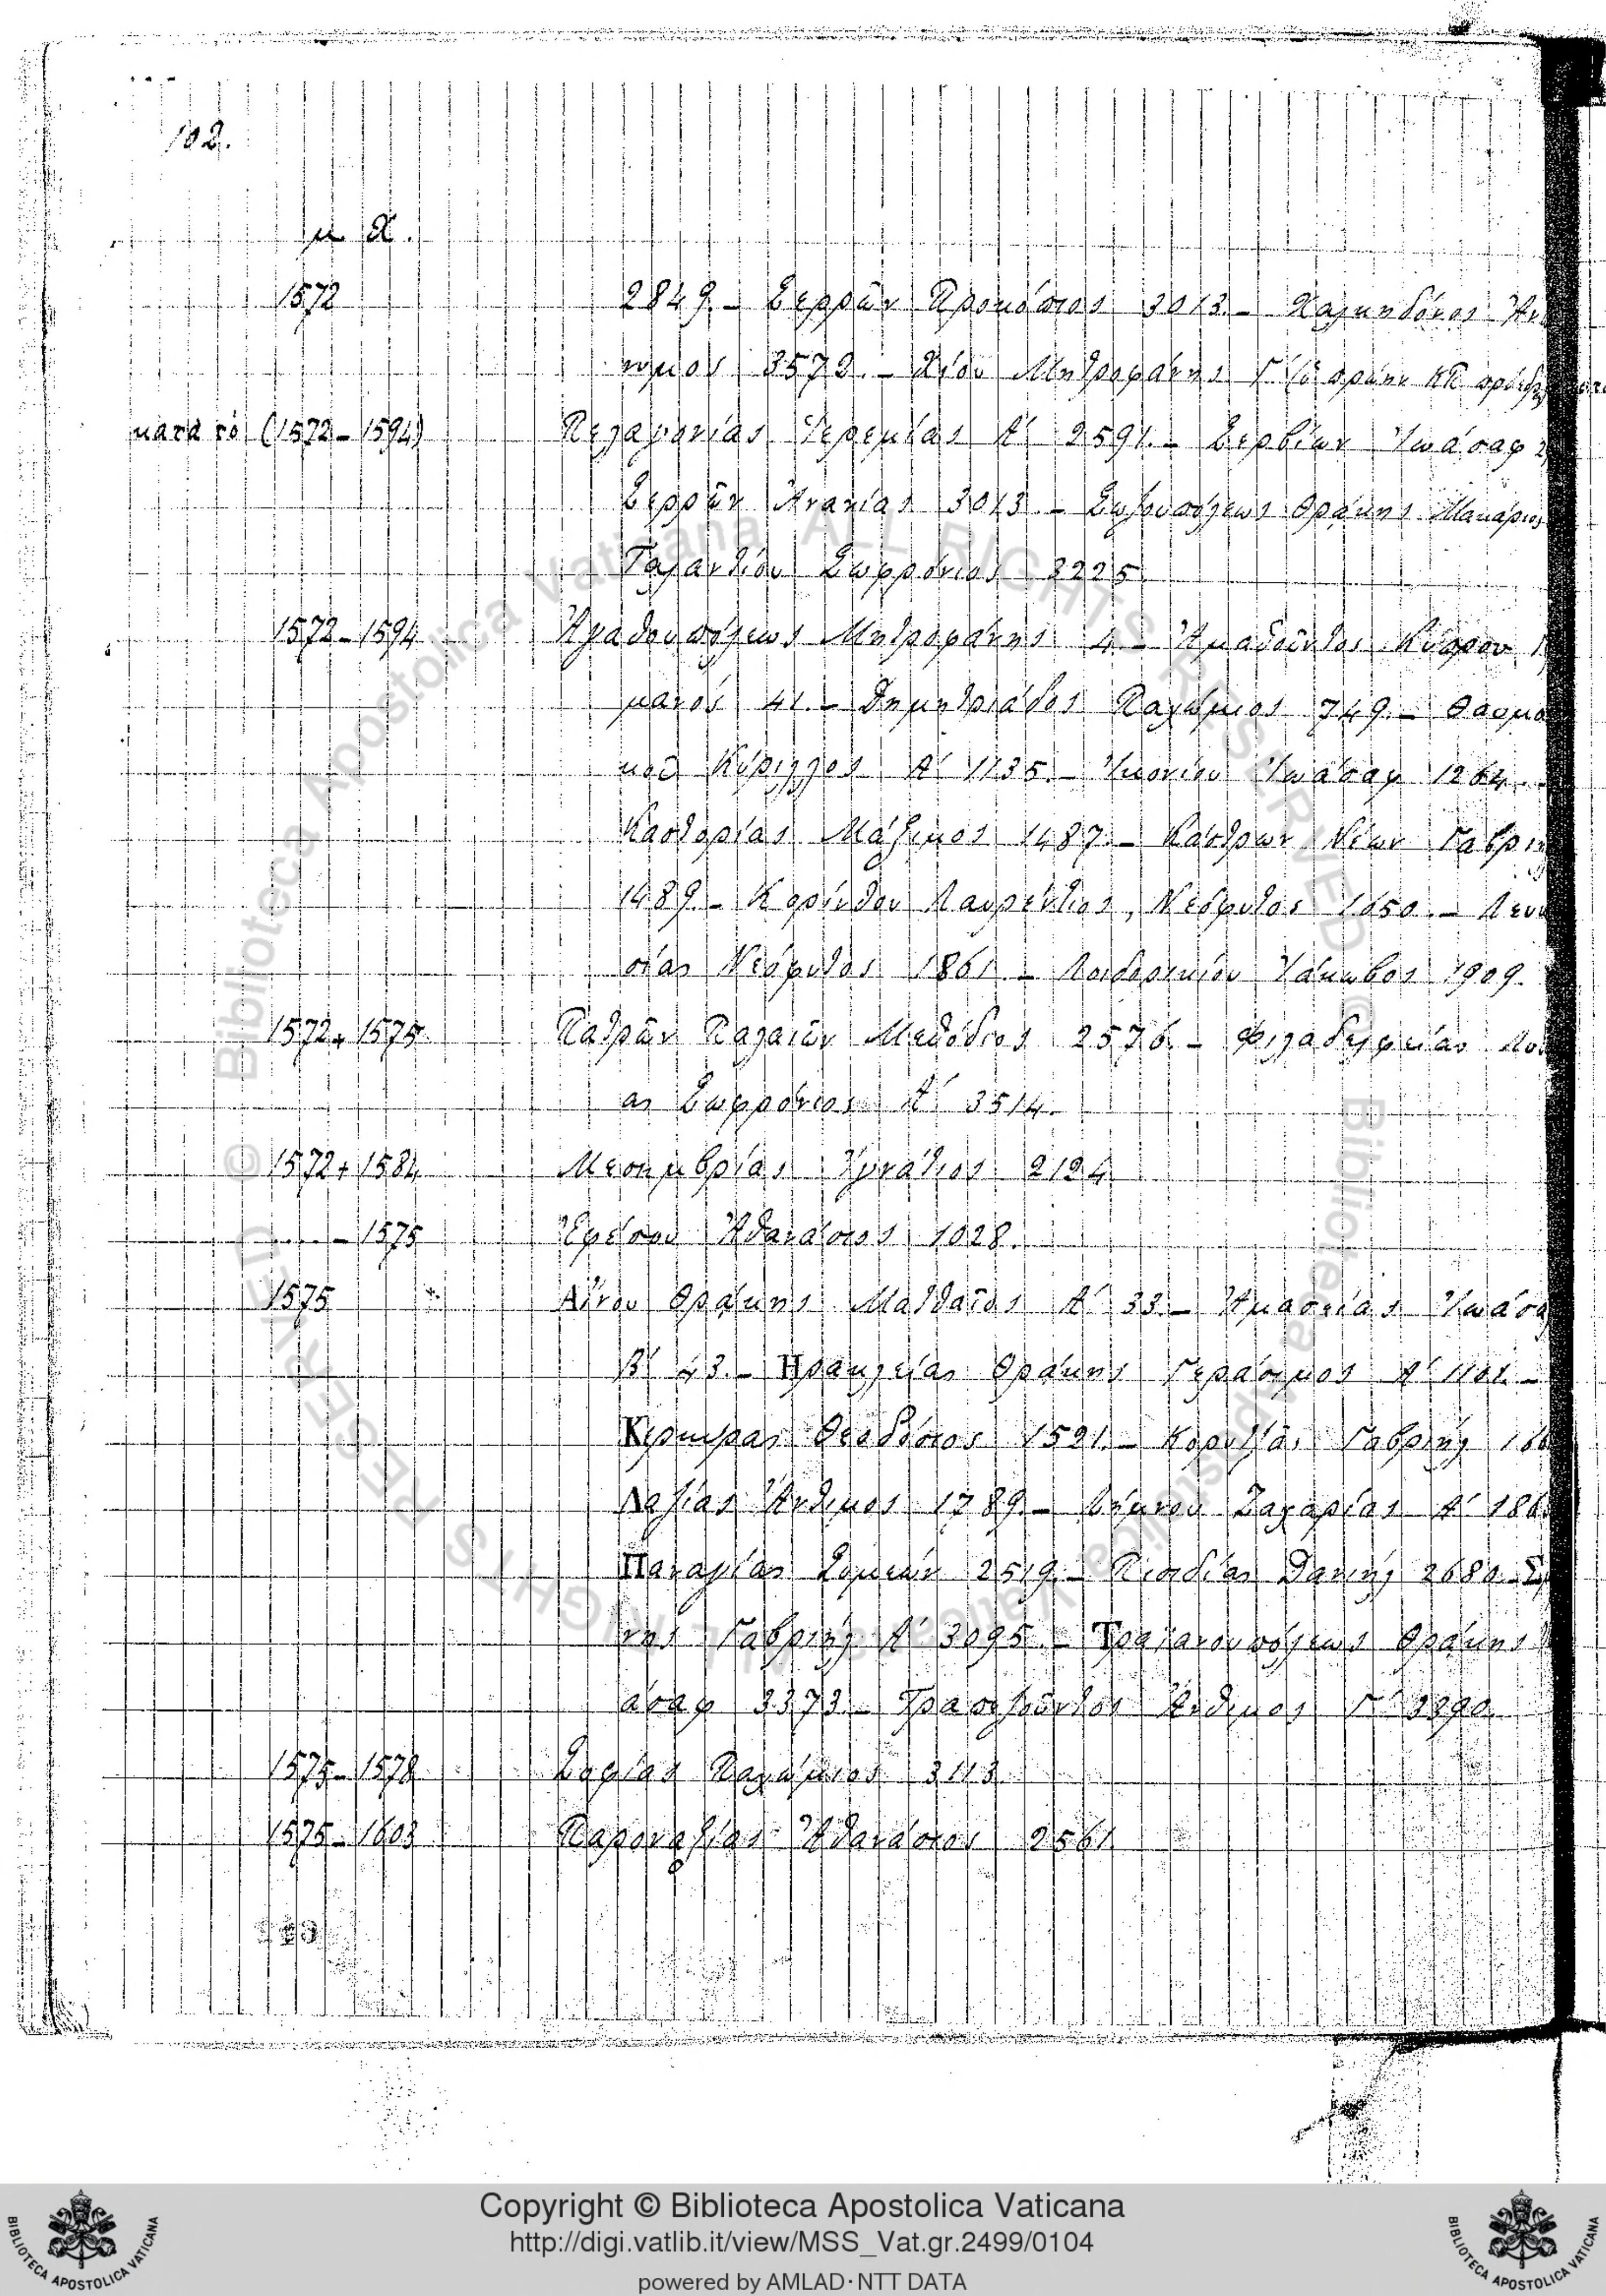 102.
μ Χ.
1572 2849.- Σερρῶν Προκόπιος 3013.- Χαλκηδόνος
3572.- Χίου Μητροφάνης Γ΄ (ὁ πρώην ΚΠ
κατὰ τό (1572-1594) Πελαγονίας Ἱερεμίας Α΄ 2591.- Σερβίων Ἰωάσαφ
Σερρῶν Ἀνανίας 3013.- Σωζουπόλεως Θράκης Μακάριος
Γαλαντίου Σωφρόνιος 3225
1572-1594 Ἀγαθουπόλεως Μητροφάνης 4.- Ἀμαθοῦντος Κύπρου
μανός 41.- Δημητριάδος Παχώμιος 749.- Θαυμα
κοῦ Κύριλλος Α΄ 1135.- Ἰκονίου Ἰωάσαφ 1264.-
Καστορίας Μάξιμος 1487.- Κάστρων Νέων Γαβριὴλ
1489.- Κορίνθου Λαυρέντιος, Νεόφυτος 1650.- Λευκ
σίας Νεόφυτος 1861.- Λοιδορικίου Ἰάκωβος 1909.
1572+1575 Πατρῶν Παλαιῶν Μεθόδιος 2576.- Φιλαδελφείας
ας Σωφρόνιος Α΄ 3514.
1572+1584 Μεσημβρίας Ἰγνάτιος 2124
....-1575 Ἐφέσου Ἀθανάσιος 1028.
1575 Αἴνου Θράκης Ματθαῖος Α΄ 33.- Ἀμασείας Ἰωάσα
Β΄ 43.- Ἡρακλείας Θράκης Γεράσιμος Α΄ 1101.-
Κερκύρας Θεοδόσιος 1521.- Κορυτσᾶς Γαβριήλ 166
Λαζίας Ἄνθιμος 1789.- Λήμνου Ζαχαρίας Α΄ 186
Παναγίας Συμεών 2519.- Πισιδίας Δανιήλ 2680.- Σμ
νης Γαβριήλ Α΄ 3095.- Τραϊανουπόλεως Θράκης
άσαφ 3373.- Τραπεζοῦντος Ἄνθιμος Γ΄ 3390.
1575-1578 Σοφίας Παχώμιος 3113
1575-1603 Παροναξίας Ἀθανάσιος 2561
Copyright © Biblioteca Apostolica Vaticana
http://digi.vatlib.it/view/MSS_Vat.gr.2499/0104
powered by AMLAD·NTT DATA
BIBLIOTECA APOSTOLICA VATICANA
BIBLIOTECA APOSTOLICA VATICANA